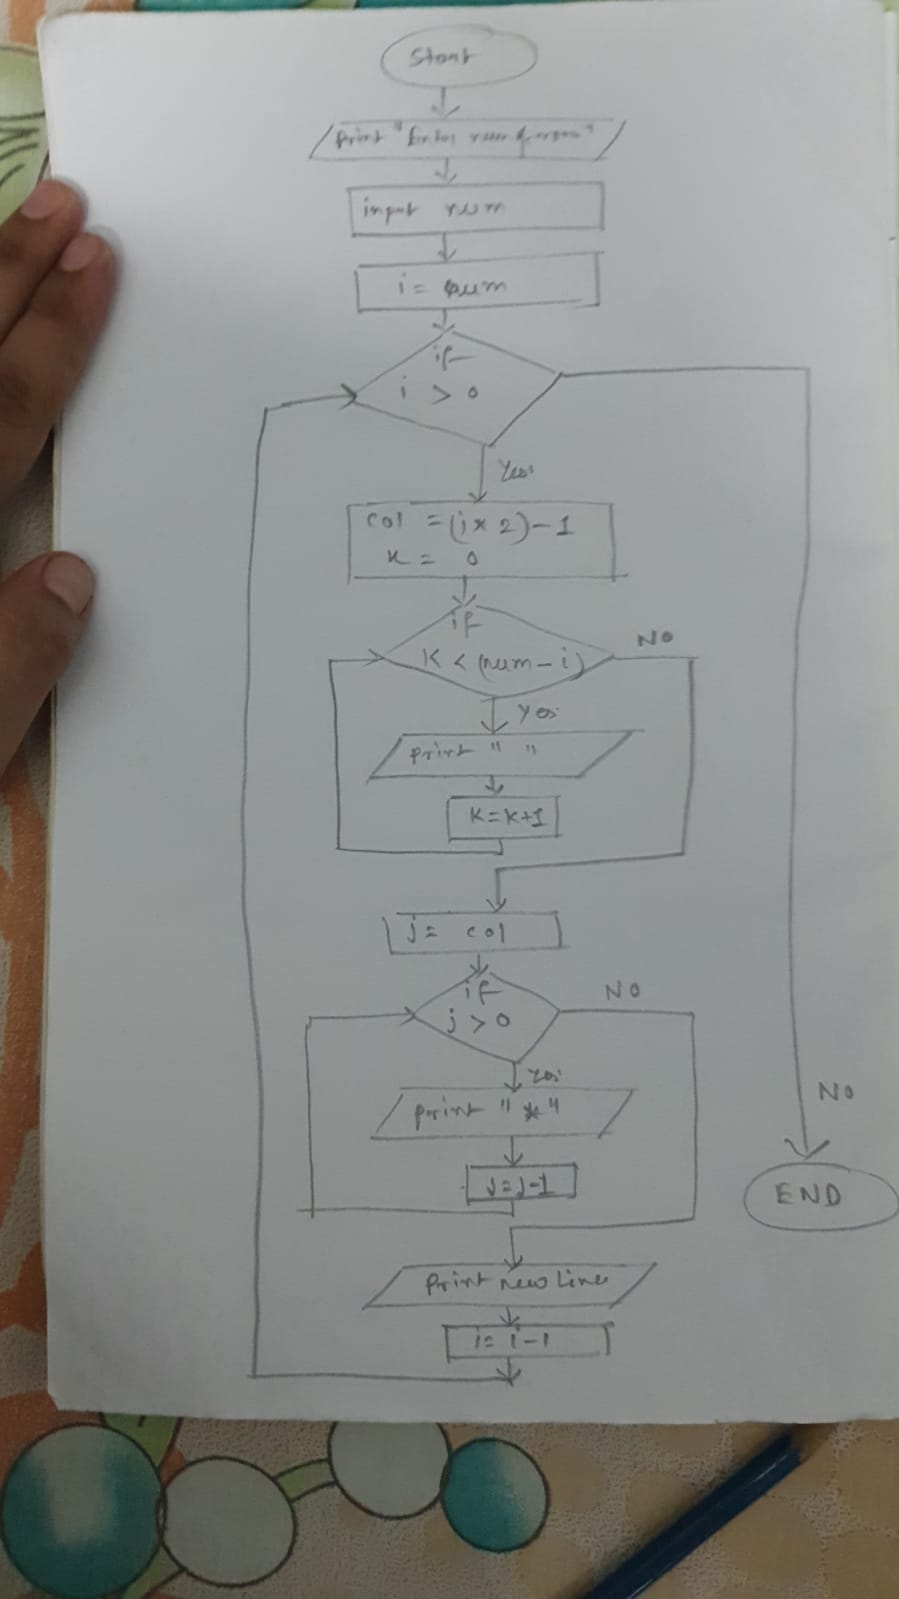 Start
print "Enter num of rows"
input num
i = num
if
i > 0
Yes
col = (i * 2) - 1
k = 0
if
K < (num - i)
NO
Yes
print " "
K = K + 1
j = col
if
j > 0
NO
Yes
print " * "
j = j - 1
NO
END
Print new Line
i = i - 1